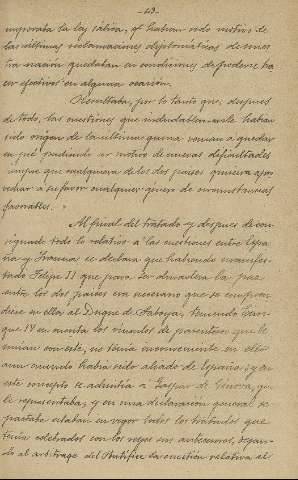 -13-
imperaba la ley sálica, q habian sido motivo de
las últimas reclamaciones diplomáticas de nues
tra nación quedaban en condiciones de poderse ha
cer efectivos en alguna ocasión.
Resultaba, por lo tanto que, despues
de todo, las cuestiones que indudablemente habian
sido origen de la última guerra venian a quedar
en pié pudiendo ser motivo de nuevas dificultades
siempre que cualquiera de los dos paises quisiera apro
vechar a su favor cualquier género de circunstancias
favorables.
Al final del tratado y despues de con
signado todo lo relativo a las cuestiones entre Espa
ña y Francia se declara que habiendo manifes
tado Felipe II que para ser duradera la paz
entre los dos paises era necesario que se compren
diese en ella al Duque de Saboya, teniendo Enri
que IV en cuenta los vinculos de parentesco que le
unian con este, no tenia inconveniente en ello
aun cuando habia sido aliado de España; y en
este concepto se admitia a Gaspar de Genova, que
le representaba, y en una declaración general se
pactaba estaban en vigor todos los tratados que
tenia celebrados con los reyes sus antecesores, dejan-
do al arbitrage del Pontifice la cuestión relativa al